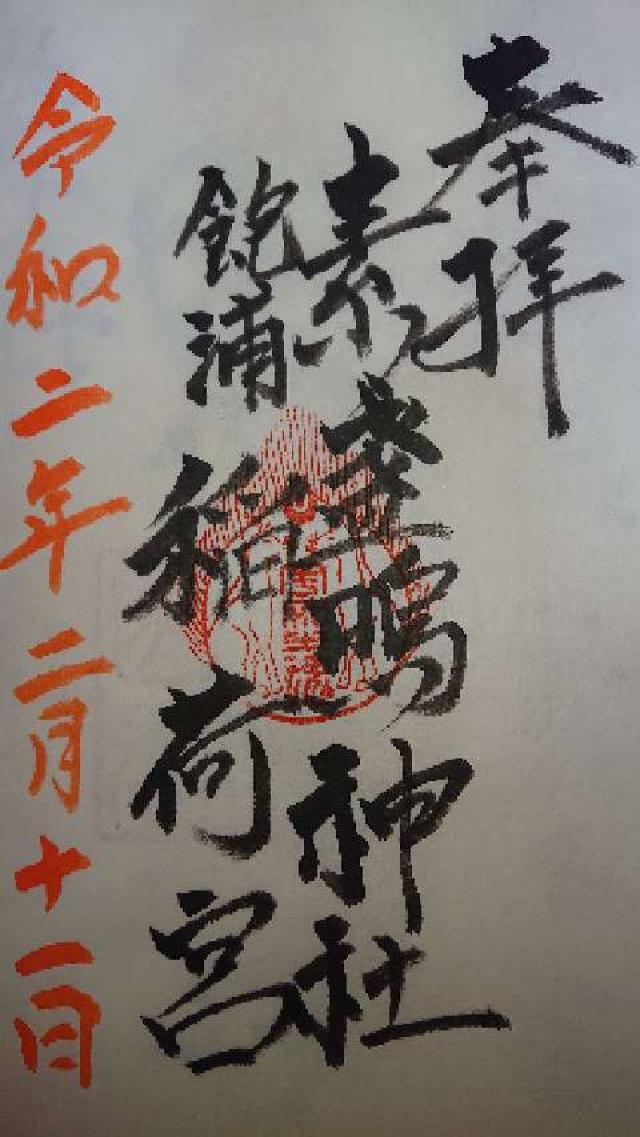 奉拝
素盞鳴神社
鉋浦
稲荷宮
令和二年二月十一日